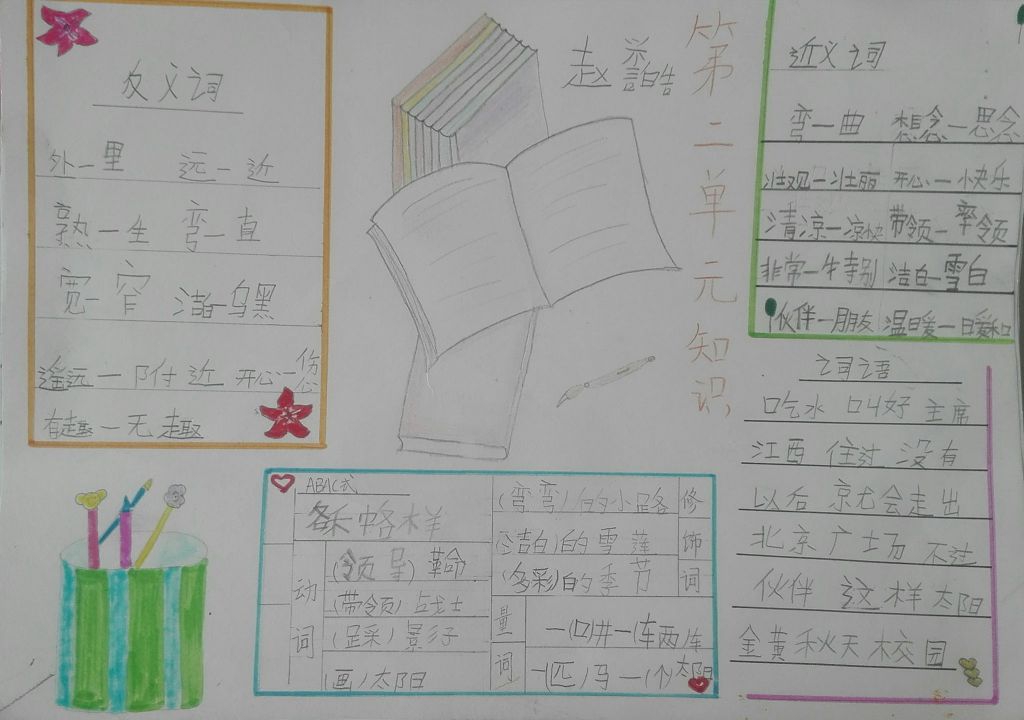 反义词
外—里 远—近
熟—生 弯—直
宽—窄 洁白—乌黑
遥远—附近 开心—伤心
有趣—无趣
第二单元知识
近义词
弯—曲 想念—思念
壮观—壮丽 开心—快乐
清凉—凉快 带领—率领
非常—特别 洁白—雪白
伙伴—朋友 温暖—暖和
词语
吃水 叫好 主席
江西 住过 没有
以后 就会 走出
北京 广场 不过
伙伴 这样 太阳
金黄 秋天 校园
ABAC式
各种各样
动词
(领导)革命
(带领)战士
(踩)影子
(画)太阳
修饰词
(弯弯)的小路
(洁白)的雪莲
(多彩)的季节
量词
一(口)井 一(辆)车
一(匹)马 一(个)太阳